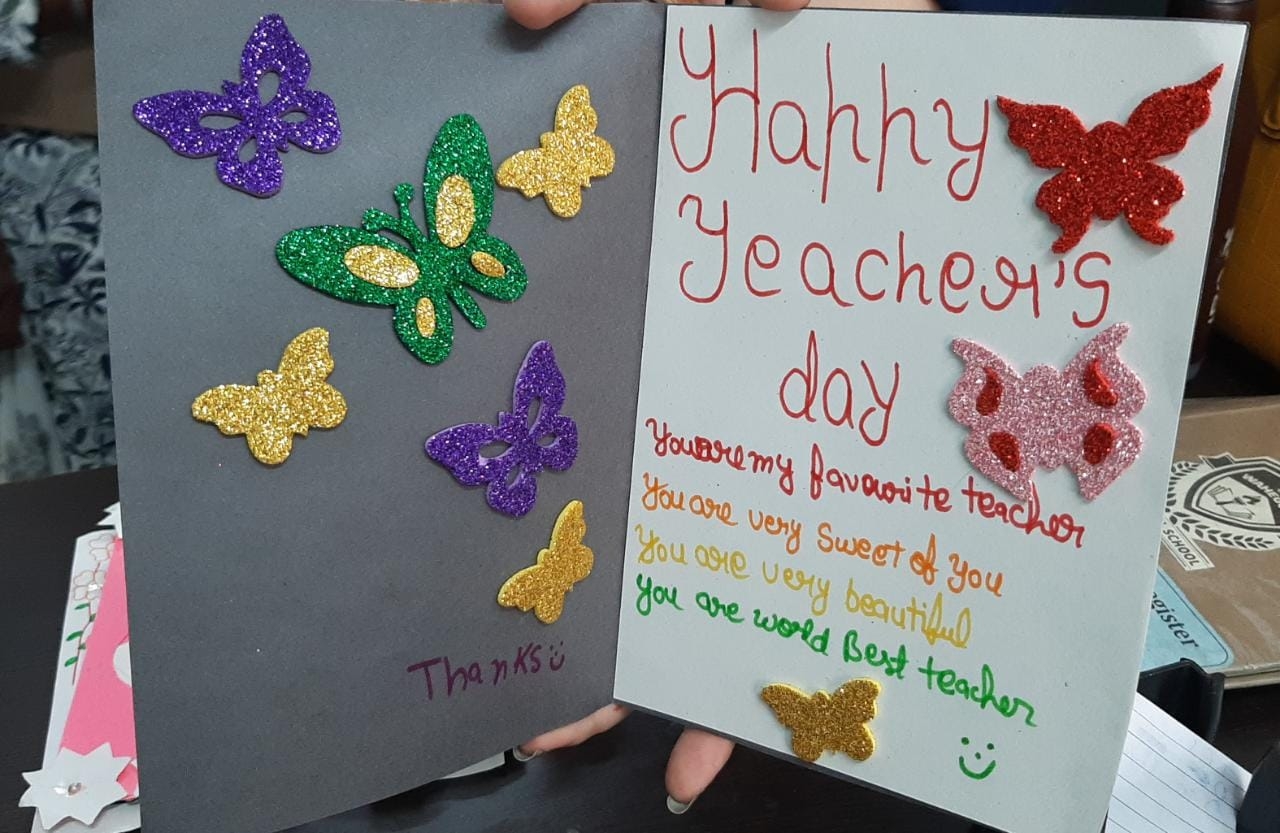 Thanks
Happy
Teacher's
day
You are my favourite teacher
You are very Sweet of you
You are very beautiful
you are world Best teacher
SCHOOL
egister